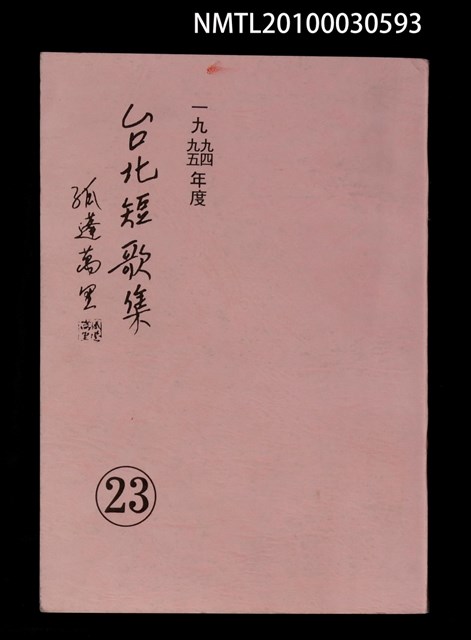 NMTL20100030593
一九九四九五年度
台北短歌集
孤蓬萬里
孤蓬萬里
23